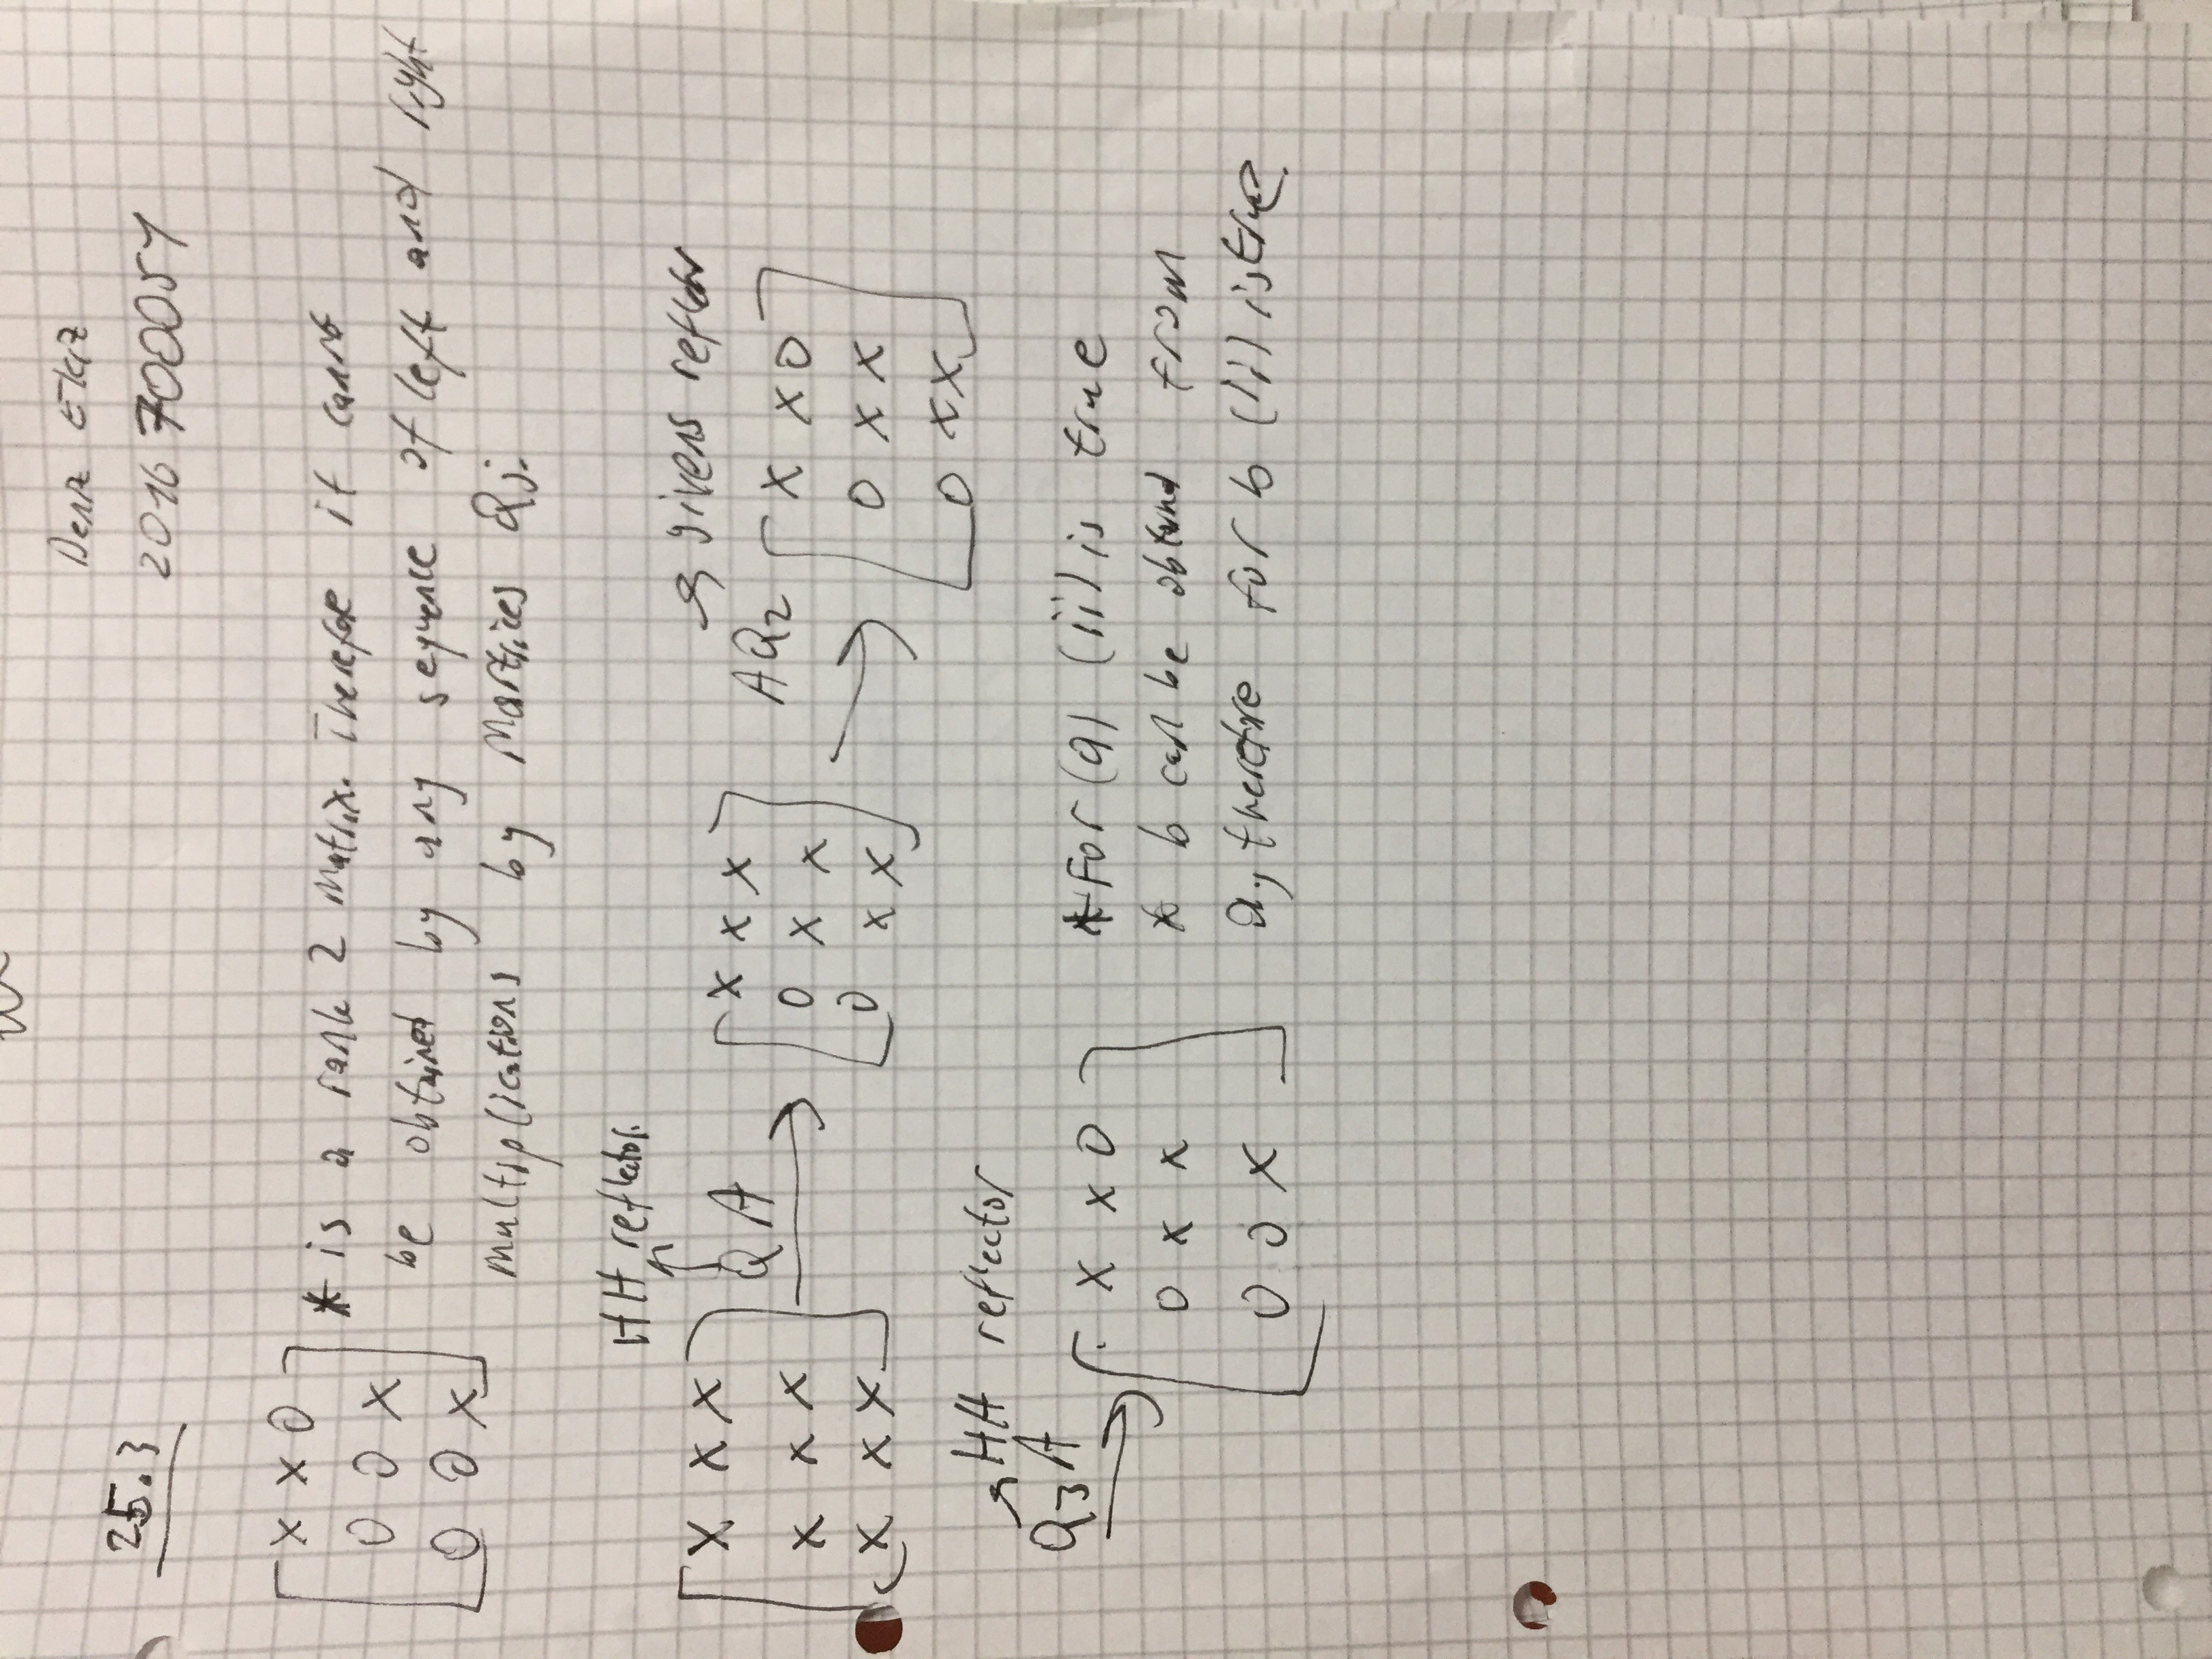 Deniz Ekiz
25.3
2016700051
x x 0
0 0 x
0 0 x
* is a rank 2 matrix. Therefore it cannt
be obtained by any sequence of left and right
multiplications by Martrices Qj.
HH reflector.
x x x
x x x
x x x
QA
x x x
0 x x
0 x x
givens reflector
AQ2
x x 0
0 x x
0 x x
HH reflector
Q3A
x x 0
0 x x
0 0 x
* For (a) (ii) is true
* b can be obtained from
a, therefore for b (ii) is true